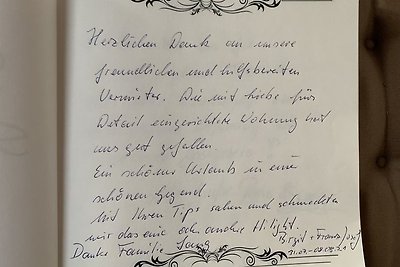 Herzlichen Dank an unsere
freundlichen und hilfsbereiten
Vermieter. Die mit Liebe fürs
Detail eingerichtete Wohnung hat
uns gut gefallen.
Ein schöner Urlaub in eine
schönen Gegend.
Mit Ihren Tips sahen und schmeckten
wir das eine oder andere Hilight.
Danke Familie Birgit + Franz Josef
31.07.-